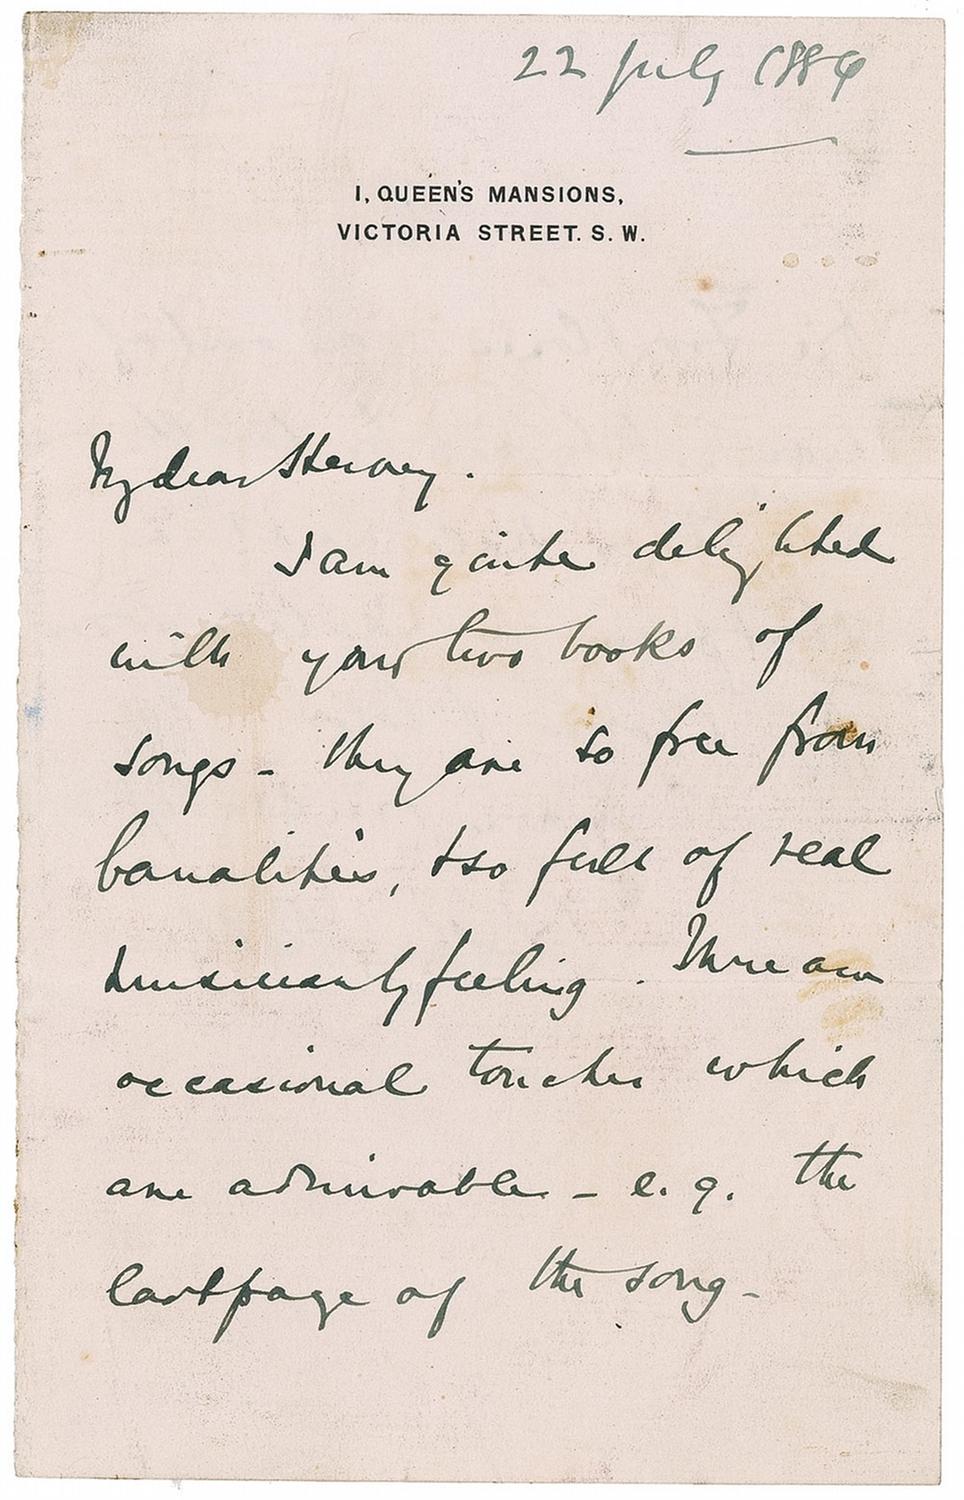 22 July 1886
1, QUEEN'S MANSIONS,
VICTORIA STREET. S. W.
My dear Hervey.
I am quite delighted
with your two books of
songs - they are so free from
banalities, & so full of real
& musicianly feeling. There are
occasional touches which
are admirable - e.g. the
last page of the song -